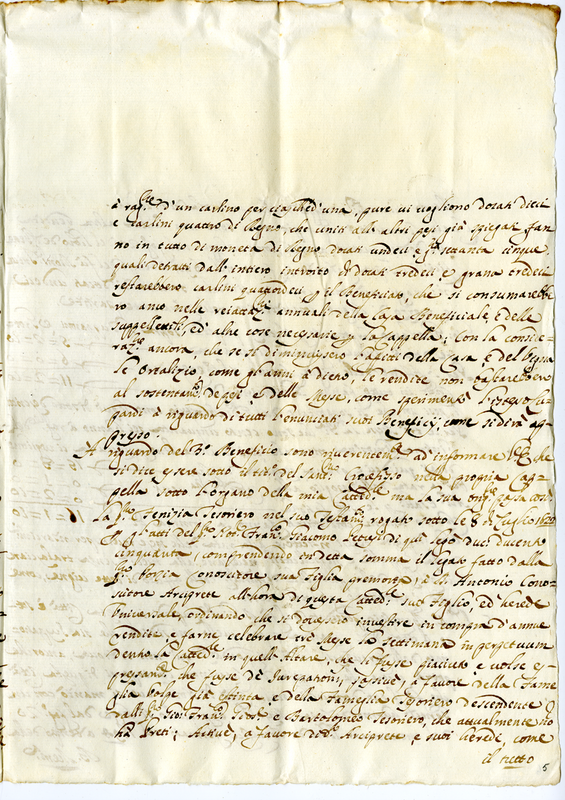 à rag.ne d'un carlino per ciasched'una, pure vi vogliono docati dieci
e carlini quattro di Regno, che uniti alli altri pesi già spiegati fan
no in tutto di moneta di Regno docati undeci e g.na settanta cinque
quali detratti dall'intiero introito di docati tredeci, e grana tredeci
restarebbero carlini quattordeci p il Beneficiato, che si consumarebbe
ro anco nelle annuali della Casa Beneficiale, e delle
suppellettili, ed altre cose necessarie p la Cappella; Con la conside-
rat.ne ancora, che se si diminuissero l'affitti della Casa, e del
le Ortalizio, come gl'anni à dietro, le rendite non bastarebbero
al sostentam.to de pesi, e delle Messe, come sperimentò
à riguardo di tutti l'enunciati suoi Beneficij, come si dirà ap-
presso.
A riguardo del 3.o Beneficio sono riverentem.te ad informare che
si dice essere sotto il tit.o del Sant.mo Crocefisso nella propria Cap-
pella sotto l'organo della mia Catted.le ma la sua
La Tenizia Tesoriero nel suo Testam.to rogato sotto li 8 di Luglio 1622
p gl'atti del Not.o Fran.co Giacomo di questo docati ducento
cinquanta, comprendendo in detta somma il legato fatto dalla
Porzia Conoscitore sua Figlia premorta, è D. Antonio Cono-
scitore Arciprete all'hora di questa Catted.le suo Figlio, ed herede
Universale, ordinando, che si dovessero investire in compra d'annue
rendite, e farne celebrare trè Messe la settimana in perpetuum
dentro la Catted.le in quell'Altare, che li fusse piaciuto e volse es-
pressam.te che fusse de Iurepatron. passivo, a favore della Fame
glia Volpe già estinta, e della Fameglia Tesoriero descendente
dalli Fran.co e Bartolomeo Tesoriero, che actualmente
hà Preti; Activo, a favore di d.o Arciprete, e suoi heredi, come
il tutto
5